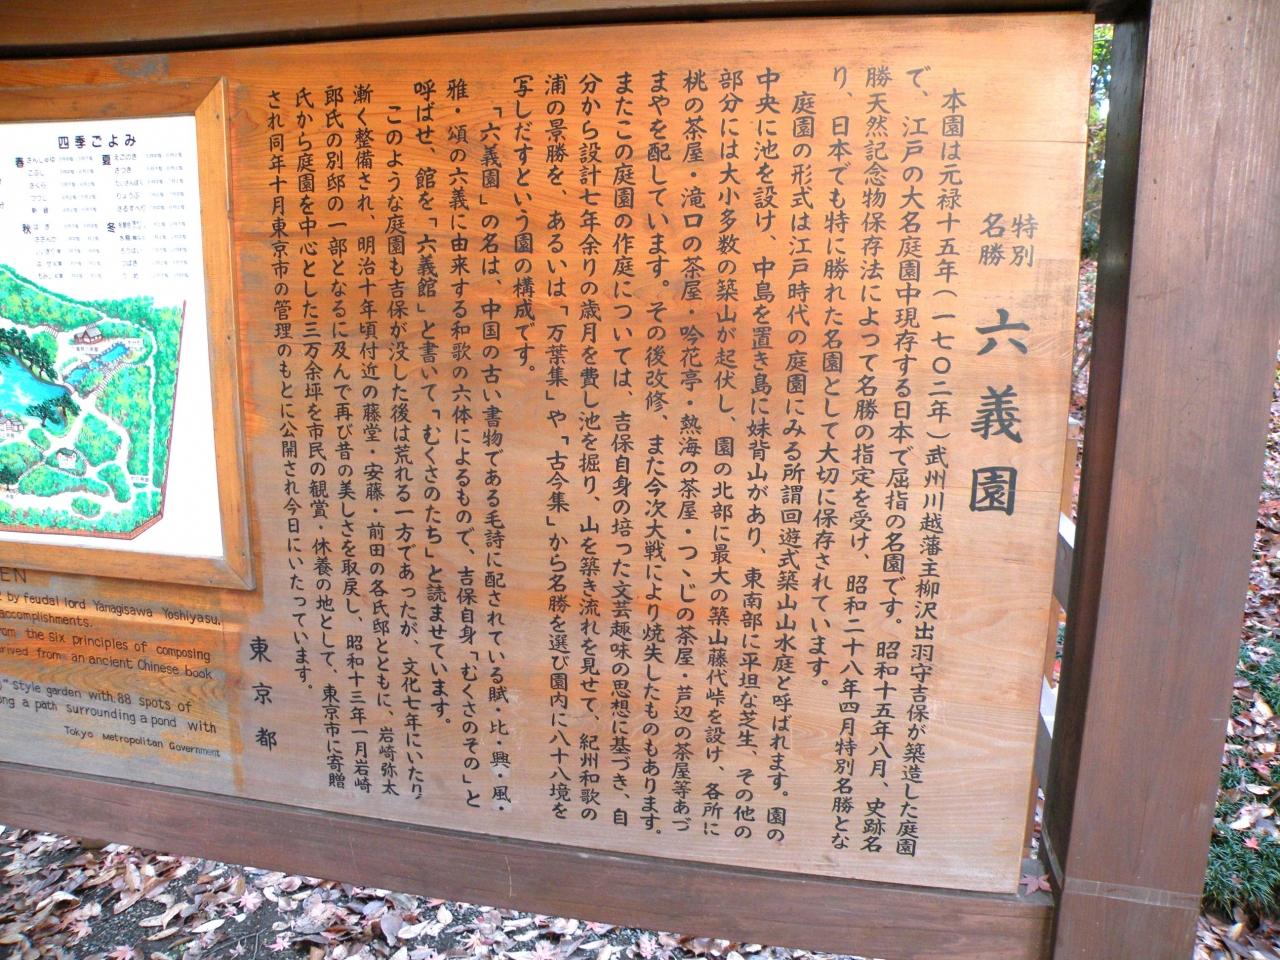 特別
名勝
六義園
本園は元禄十五年（一七〇二年）武州川越藩主柳沢出羽守吉保が築造した庭園
で、江戸の大名庭園中現存する日本で屈指の名園です。昭和十五年八月、史跡名
勝天然記念物保存法によって名勝の指定を受け、昭和二十八年四月特別名勝とな
り、日本でも特に勝れた名園として大切に保存されています。
庭園の形式は江戸時代の庭園にみる所謂回遊式築山山水庭と呼ばれます。園の
中央に池を設け、中島を置き島に妹背山があり、東南部に平坦な芝生、その他の
部分には大小多数の築山が起伏し、園の北部に最大の築山藤代峠を設け、各所に
桃の茶屋・滝口の茶屋・吟花亭・熱海の茶屋・つゝじの茶屋・芦辺の茶屋等あづ
まやを配しています。その後改修、また今次大戦により焼失したものもあります。
またこの庭園の作庭については、吉保自身の培った文芸趣味の思想に基づき、自
分から設計七年余りの歳月を費し池を掘り、山を築き流れを見せて、紀州和歌の
浦の景勝を、あるいは「万葉集」や「古今集」から名勝を選び園内に八十八境を
写しだすという園の構成です。
「六義園」の名は、中国の古い書物である毛詩に配されている賦・比・興・風・
雅・頌の六義に由来する和歌の六体によるもので、吉保自身「むくさのその」と
呼ばせ、館を「六義館」と書いて、「むくさのたち」と読ませています。
このような庭園も吉保が没した後は荒れる一方であったが、文化七年にいたり、
漸く整備され、明治十年頃付近の藤堂・安藤・前田の各氏邸とともに、岩崎弥太
郎氏の別邸の一部となるに及んで再び昔の美しさを取戻し、昭和十三年一月岩崎
氏から庭園を中心とした三万余坪を市民の観賞・休養の地として、東京市に寄贈
され同年十月東京市の管理のもとに公開され今日にいたっています。
東京都
四季ごよみ
春
さんしゅゆ
こぶし
さくら
つつじ
新緑
夏
えごのき
さつき
たいさんぼく
りょうぶ
さるすべり
秋
はぎ
冬
EN
by feudal lord Yanagisawa Yoshiyasu,
accomplishments.
om the six principles of composing
rived from an ancient Chinese book
" style garden with 88 spots of
ong a path surrounding a pond with
Tokyo Metropolitan Government